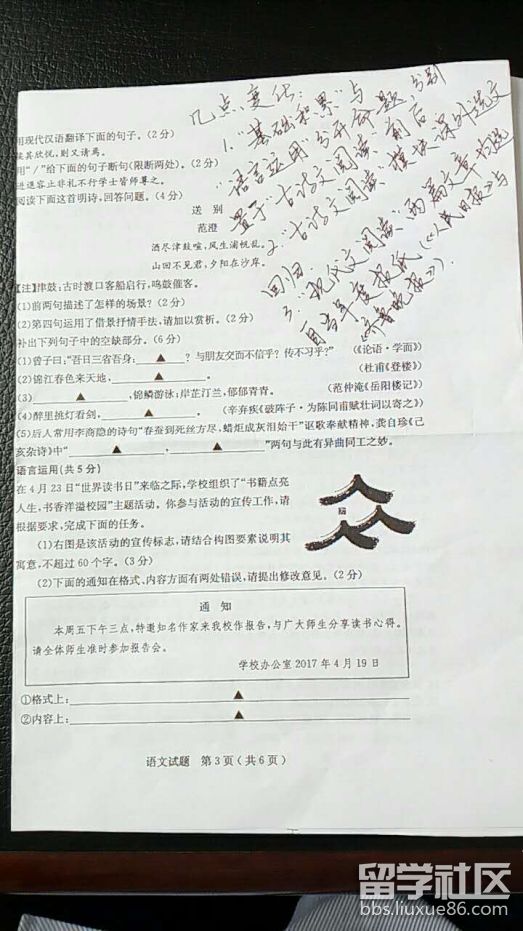 几点变化：
1."基础积累"与
"语言运用"分开命题，分别
置于"古诗文阅读"前后
2."古诗文阅读"模块课外选文
回归
3."现代文阅读"两篇文章均选
自当年度报纸(《人民日报》与
《齐鲁晚报》).
用现代汉语翻译下面的句子。(2分)
读其欣悦,则又请焉。
用"/"给下面的句子断句(限断两处)。(2分)
进退容止非礼不行学士皆师尊之。
阅读下面这首明诗,回答问题。(4分)
送 别
范澄
酒尽津鼓喧,风生浦帆乱。
山回不见君,夕阳在沙岸。
【注】津鼓:古时渡口客船启行,鸣鼓催客。
(1)前两句描述了怎样的场景?(2分)
(2)第四句运用了借景抒情手法,请加以赏析。(2分)
补出下列句子中的空缺部分。(6分)
(1)曾子曰:"吾日三省吾身:▲?与朋友交而不信乎?传不习乎?" (《论语·学而》)
(2)锦江春色来天地,▲。 (杜甫《登楼》)
(3)▲,锦鳞游泳;岸芷汀兰,郁郁青青。 (范仲淹《岳阳楼记》)
(4)醉里挑灯看剑,▲。 (辛弃疾《破阵子·为陈同甫赋壮词以寄之》)
(5)后人常用李商隐的诗句"春蚕到死丝方尽,蜡炬成灰泪始干"讴歌奉献精神,龚自珍《己
亥杂诗》中"▲,▲"两句与此有异曲同工之妙。
语言运用(共5分)
在4月23日"世界读书日"来临之际,学校组织了"书籍点亮
人生,书香洋溢校园"主题活动。你参与活动的宣传工作,请
根据要求,完成下面的任务。
(1)右图是该活动的宣传标志,请结合构图要素说明其
寓意,不超过60个字。(3分)
(2)下面的通知在格式、内容方面有两处错误,请提出修改意见。(2分)
通 知
本周五下午三点,特邀知名作家来我校作报告,与广大师生分享读书心得。
请全体师生准时参加报告会。
学校办公室2017年4月19日
①格式上:▲
②内容上:▲
语文试题 第3页(共6页)
留学社区
bbs.liuxue86.com